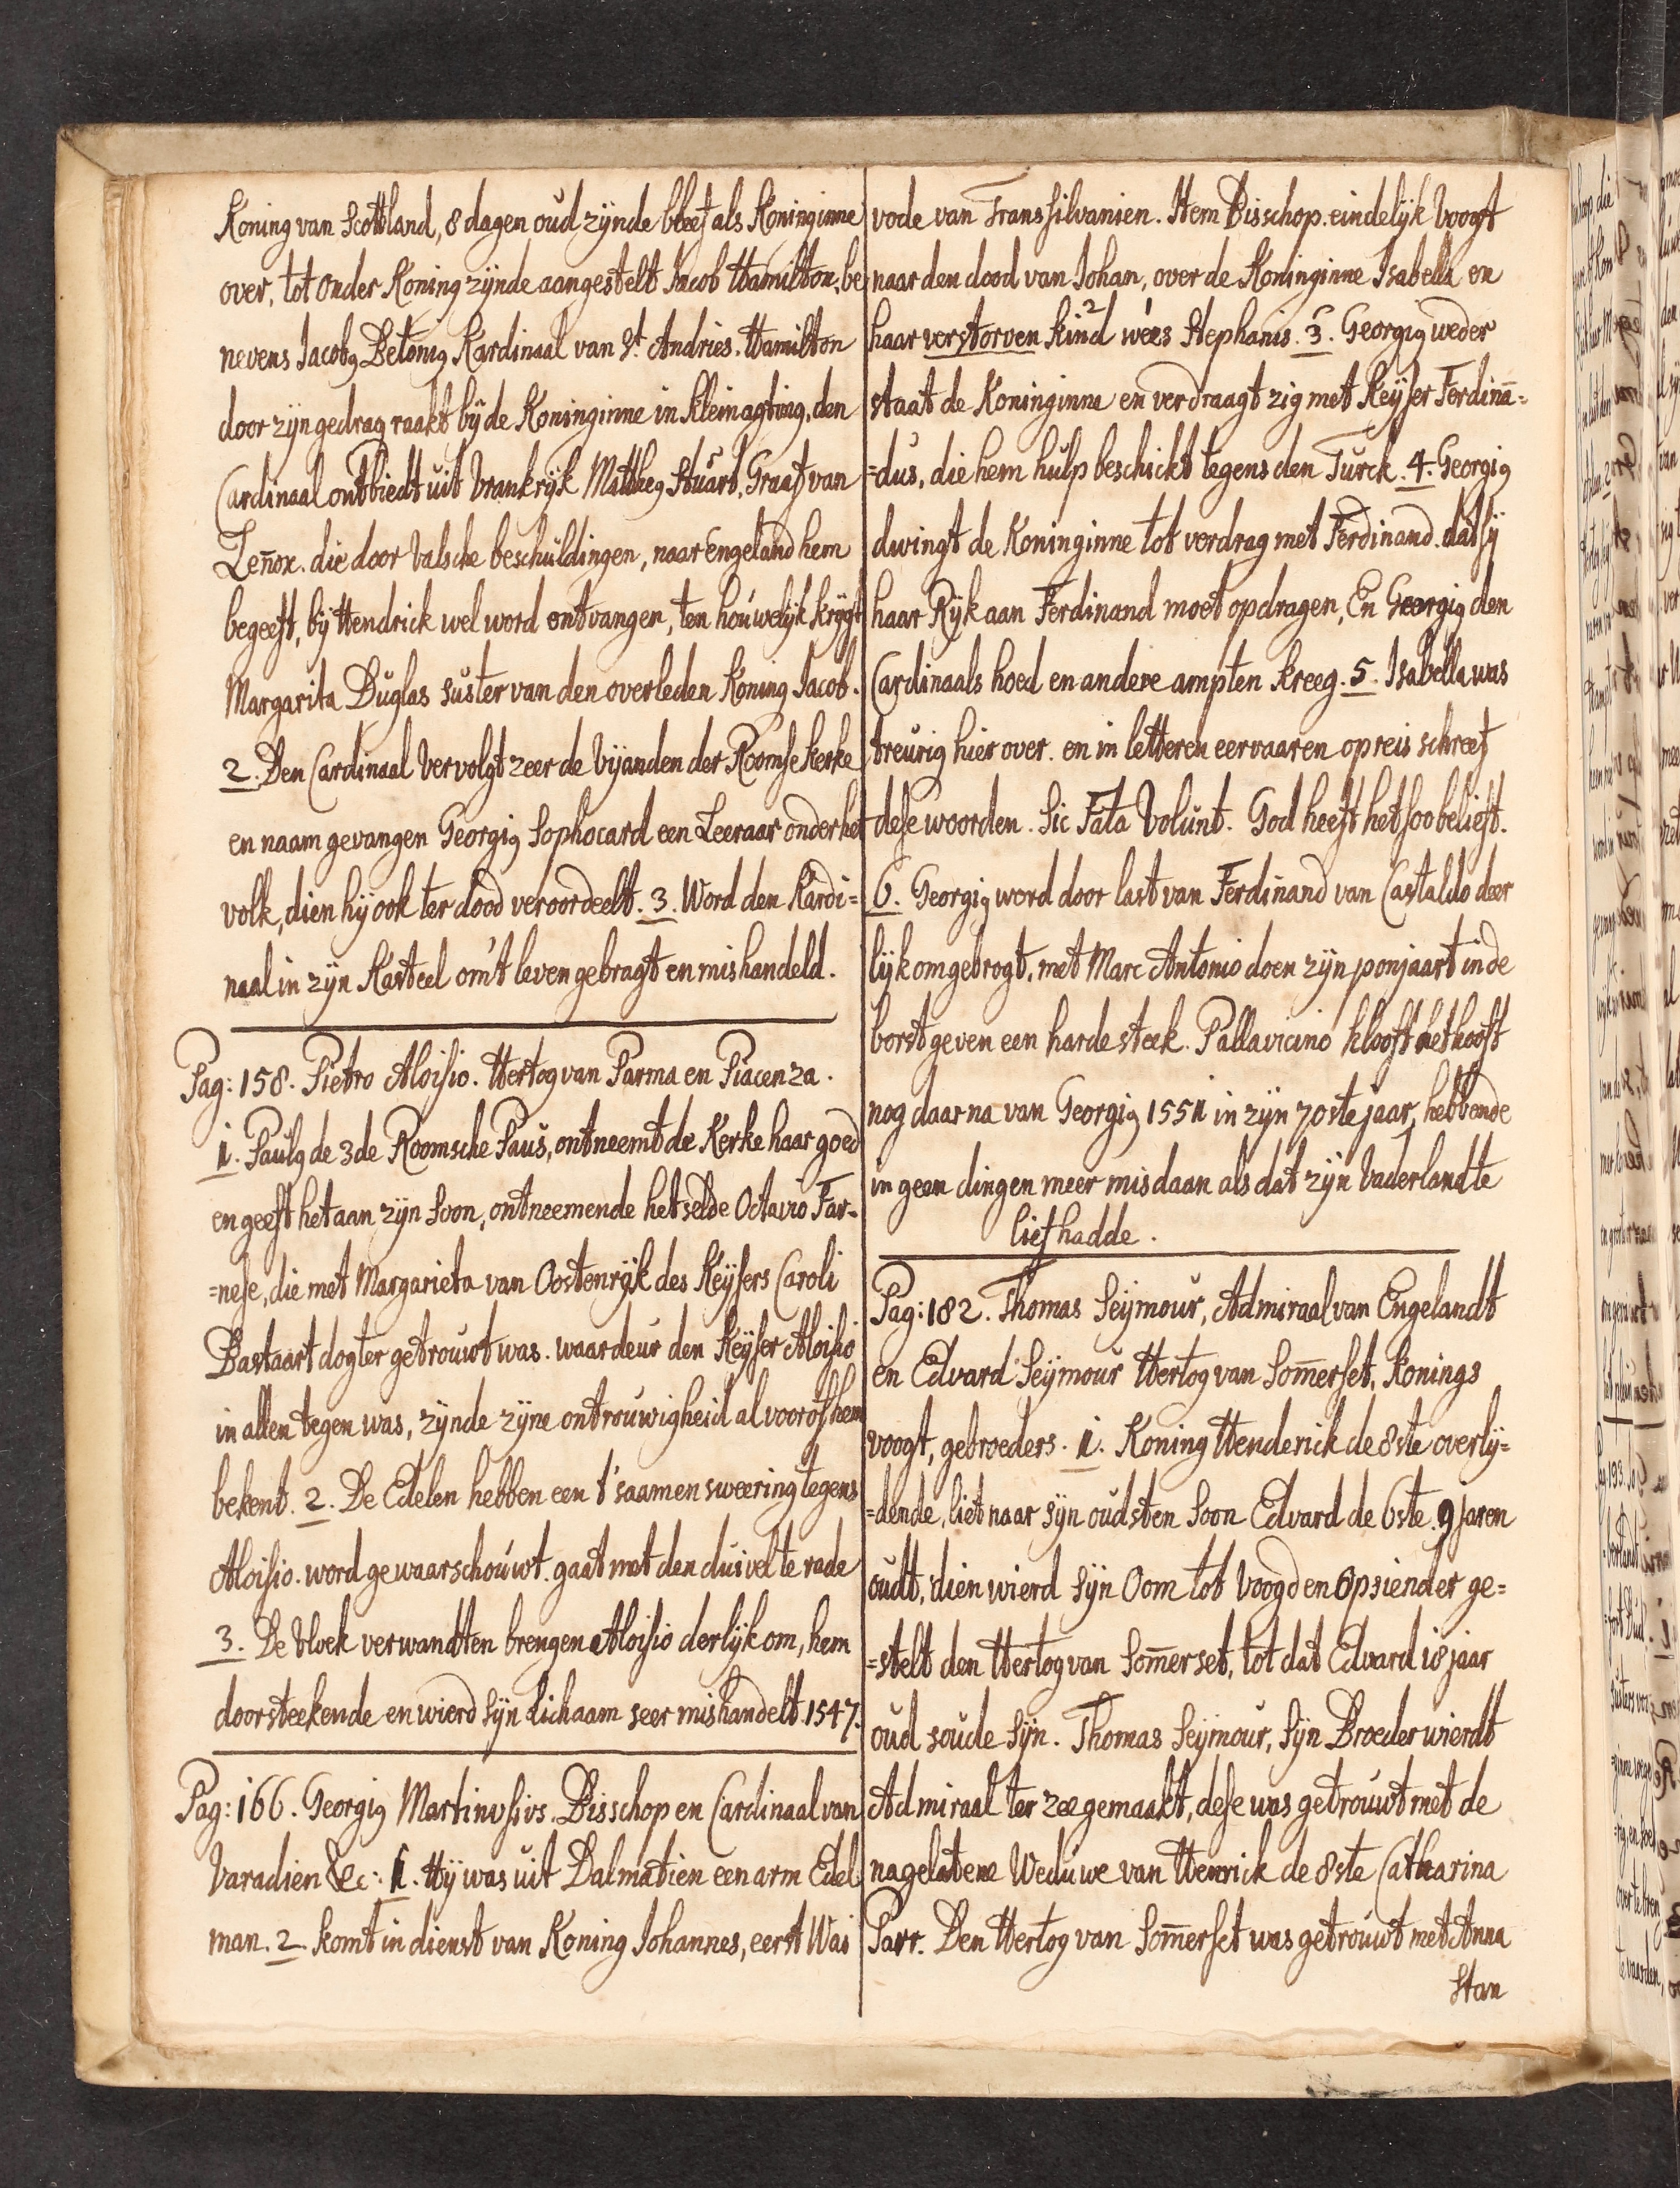 Koning van Scottland, 8 dagen oud zijnde bleef als Koninginne
over, tot onder Koning zijnde aangestelt Jacob Hamilton, be
nevens Jacobus Betonius Kardinaal van St. Andries. Hamilton
door zijn gedrag raakt bij de Koninginne in kleinagting, den
Cardinaal ontbiedt uit Vrankrijk Mattheus Stuart, Graaf van
Leñox. die door valsche beschuldingen, naar Engeland hem
begeeft, bij Hendrick wel word ontvangen, ten houwelijk krijgt
Margarita Duglas suster van den overleden Koning Jacob.
2. Den Cardinaal vervolgt zeer de vijanden der Roomse Kerke
en naam gevangen Georgius Sophocard een Leeraar onder het
volk, dien hij ook ter dood veroordeelt. 3. Word den Kardi=
naal in zijn Kasteel om't leven gebragt en mishandeld.
Pag: 158. Pietro Aloisio. Hertog van Parma en Piacenza.
1. Paulus de 3de Roomsche Paus, ontneemt de Kerke haar goed
en geeft het aan zijn Soon, ontneemende het selve Octavio Far=
=nese, die met Margarieta van Oostenrijk des Keijsers Caroli
Bastaart dogter getrouwt was. waar deur den Keijser Aloisio
in allen tegen was, zijnde zijne ontrouwigheid al voor of hem
bekent. 2. De Edelen hebben een t'saamensweering tegens
Aloisio. word gewaarschouwt. gaat met den duivel te rade
3. De Vloek verwandten brengen Aloisio derlijk om, hem
doorsteekende en wierd sijn Lichaam seer mishandelt. 1547.
Pag: 166. Georgius Martinusius. Bisschop en Cardinaal van
Varadien &c: 1. Hij was uit Dalmatien een arm Edel
man. 2. komt in dienst van Koning Johannes, eerst Wai
vode van Transsilvanien. Item Bisschop. eindelijk Voogt
naar den dood van Johan, over de Koninginne Isabella en
haar verstorven kind 2 wees Stephanis. 3. Georgius weder
staat de Koninginne en verdraagt zig met Keijser Ferdinā=
=dus, die hem hulp beschickt tegens den Turck. 4. Georgius
dwingt de Koninginne tot verdrag met Ferdinand. dat sij
haar Rijk aan Ferdinand moet opdragen, En Georgius den
Cardinaals hoed en andere ampten kreeg. 5. Isabella was
treurig hier over. en in letteren eervaaren op reis schreef
dese woorden. Sic Fata Volunt. God heeft het soo belieft.
6. Georgius word door last van Ferdinand van Castaldo deer
lijk omgebrogt, met Marc Antonio doen zijn ponjaart in de
borst geven een harde steek. Pallavicino klooft het hooft
nog daar na van Georgius 1551 in zijn 70ste jaar, hebbende
in geen dingen meer misdaan als dat zijn Vaderlandt te
lief hadde.
Pag: 182. Thomas Seijmour, Admiraal van Engelandt
en Edvard Seijmour Hertog van Som̄erset, Konings
voogt, gebroeders. 1. Koning Henderick de 8ste overlij=
=dende, liet naar sijn oudsten Soon Edvard de 6ste. 9 jaren
oudt, dien wierd sijn Oom tot Voogd en Opsiender ge=
=stelt den Hertog van Som̄erset, tot dat Edvard 18 jaar
oud soude sijn. Thomas Seijmour, sijn Broeder wierdt
Admiraal ter zee gemaakt, dese was getrouwt met de
nagelatene Weduwe van Henrick de 8ste Catharina
Parr. Den Hertog van Som̄erset was getrouwt met Anna
Stan